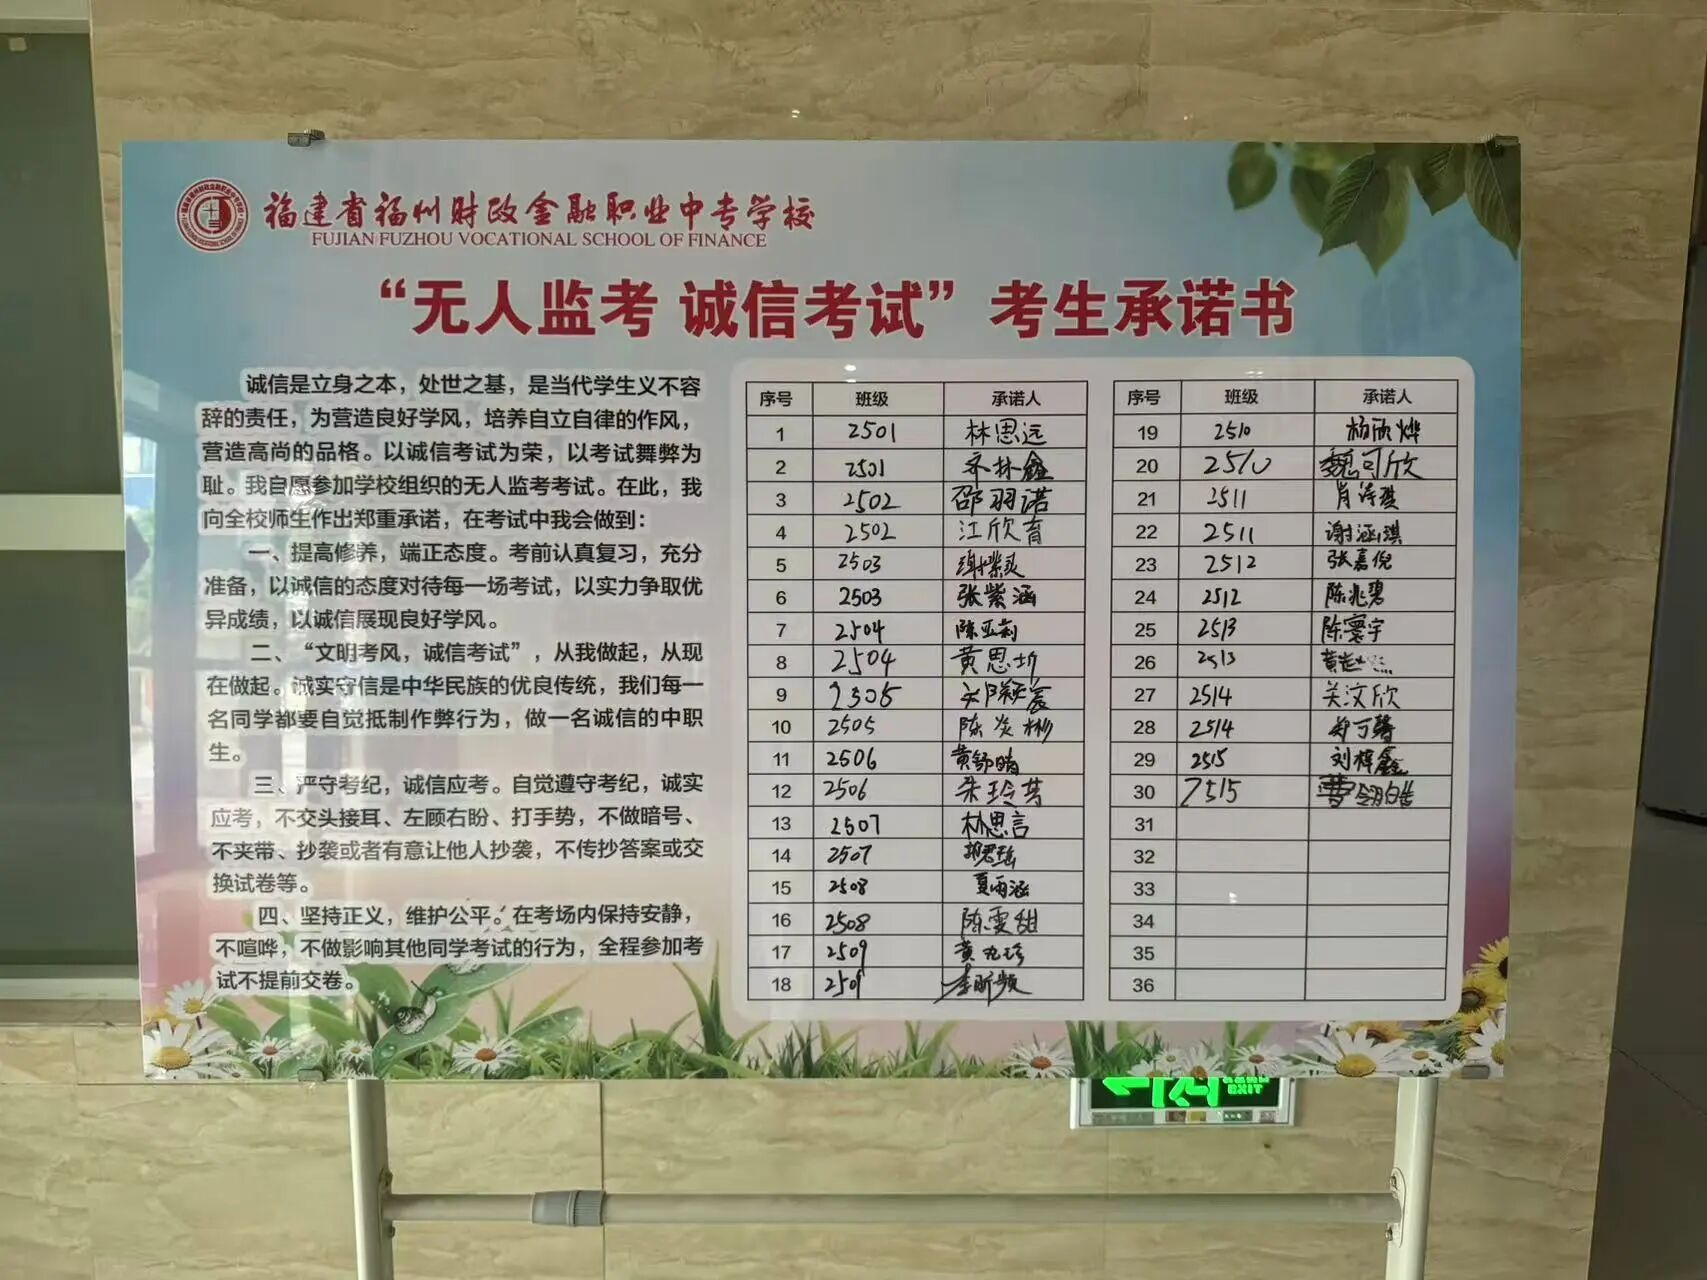 福建省福州财政金融职业中专学校
FUJIAN FUZHOU VOCATIONAL SCHOOL OF FINANCE
“无人监考 诚信考试”考生承诺书
诚信是立身之本，处世之基，是当代学生义不容
辞的责任，为营造良好学风，培养自立自律的作风，
营造高尚的品格。以诚信考试为荣，以考试舞弊为
耻。我自愿参加学校组织的无人监考考试。在此，我
向全校师生作出郑重承诺，在考试中我会做到：
一、提高修养，端正态度。考前认真复习，充分
准备，以诚信的态度对待每一场考试，以实力争取优
异成绩，以诚信展现良好学风。
二、“文明考风，诚信考试”，从我做起，从现
在做起。诚实守信是中华民族的优良传统，我们每一
名同学都要自觉抵制作弊行为，做一名诚信的中职
生。
三、严守考纪，诚信应考。自觉遵守考纪，诚实
应考，不交头接耳、左顾右盼、打手势，不做暗号、
不夹带、抄袭或者有意让他人抄袭，不传抄答案或交
换试卷等。
四、坚持正义，维护公平。在考场内保持安静，
不喧哗，不做影响其他同学考试的行为，全程参加考
试不提前交卷。
序号 班级 承诺人
1 2501 林思远
2 2501 齐林鑫
3 2502 邵羽诺
4 2502 江欣育
5 2503
6 2503 张紫涵
7 2504 陈亚莉
8 2504 黄思圻
9 2505
10 2505 陈炎彬
11 2506 黄舒晴
12 2506 朱玲芳
13 2507 林思言
14 2507 胡君瑶
15 2508 夏雨涵
16 2508 陈雯甜
17 2509
18 2509 李昕频
序号 班级 承诺人
19 2510 杨欣烨
20 2510 魏可欣
21 2511 肖诗琪
22 2511 谢涵琪
23 2512 张嘉倪
24 2512 陈兆碧
25 2513 陈寰宇
26 2513
27 2514 关汶欣
28 2514 郑可馨
29 2515 刘梓鑫
30 2515
31
32
33
34
35
36
EXIT